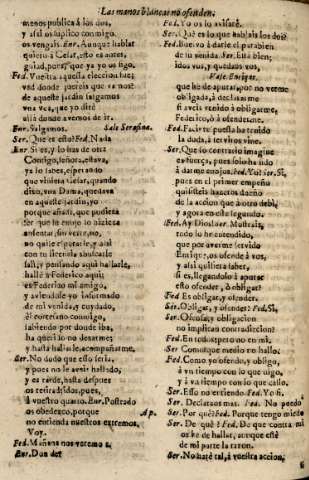 Las manos blancas no ofenden.
menos publica á los dos,
y assi os suplico conmigo
os vengais. Enr. Aunque hablar
quiero à Cesar, esto es antes,
guiad, pues, que ya yo os sigo.
Fed. Vuestra
ved donde quereis que va
de aqueste jardin salgamos
una vez, que yo dirè
allà donde avemos de ir.
Enr. Salgamos. Sale Serafina.
Ser. Què es esto? Fed. Nada
Enr. Si es, y lo has de
Consigo, señora, estava,
ya lo sabes, esperando
que viniera Cesar, quando
una Dama, que
en aqueste jardin, yo
porque
ser que
ausentar, sin verme,
no quise esperarle, y assi
con tu licencia
fali, y pensando aqui hallarle,
hallè à Federico aqui;
es Federico mi amigo,
y aviendole yo informado
de mi venida, y cuydado,
èl cortesano conmigo,
sabiendo por donde iba,
ha querido no
y hasta hallarle, acompañarme.
Ser. No dudo que esso seria,
y pues no le aveis hallado,
y es tarde, hasta despues
os retirad, pues,
à vuestro quarto. Enr. Postrado
os obedezco, porque Ap.
no entienda nuestros extremos.
Voy.
Fed. Mañana nos veremos
Enr. Don de?
Fed. Yo os lo avisarè.
Ser. Què es lo que hablais los dos?
Fed. Buelvo à darle el parabien
de su venida. Ser. Està bien;
idos vos, y quedaos vos,
Vase Enrique.
que he de apurar, por no verme
obligada, à declararme
si aveis venido à obligarme,
Federico, ò à ofenderme.
Fed. Facil te puesta ha tenido
la duda, à serviros vine.
Ser. Que lo contrario imagine
es fuerça, pues solo ha sido
à darme enojos. Fed. Yo? Ser. Si,
pues en el primer empeño
quisisteis hazeros dueño
de la accion que à otro debi,
y agora en este segundo.
Fed. Ay Dios! Ser. Mostrais,
todo lo he entendido,
que por averme servido
Enrique, os ofende à vos,
y assi quisiera saber,
si es, llegandolo à apurar
esto ofender, ò obligar?
Fed. Es obligar, y ofender.
Ser. Obligar, y ofender? Fed. Si,
Ser. Ofensa, y obligacion
no implican contradicion?
Fed. En todos, pero no en mi.
Ser. Como? que medio no hallo.
Fed. Como yo ofendo, y obligo,
à un tiempo con lo que digo,
y à un tiempo con lo que callo.
Ser. Esso no entiendo. Fed. Yo si.
Ser. Declaraos mas. Fed. No puedo
Ser. Por què? Fed. Porque tengo miedo
Ser. De què? Fed. De que contra mi
os he de hallar, aunque estè
de mi parte la razon.
Ser. No harè tal, à vuestra accion,